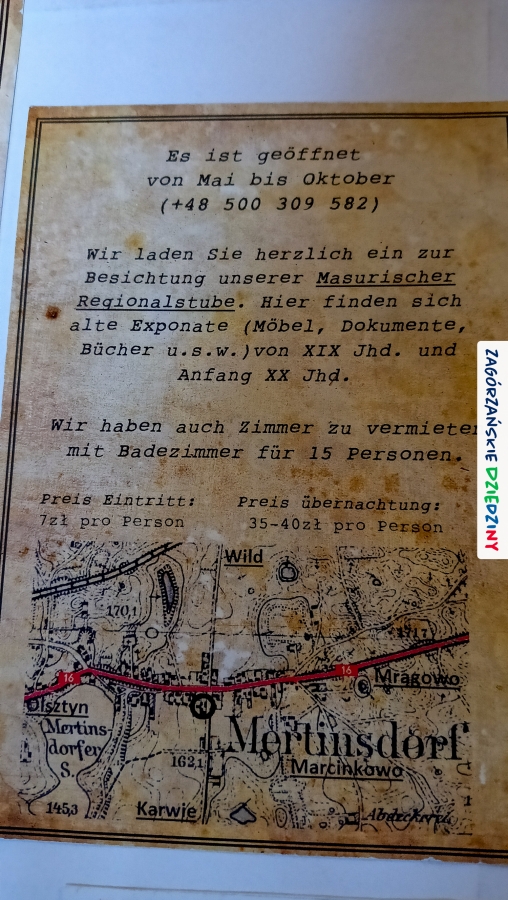 Es ist geöffnet
von Mai bis Oktober
(+48 500 309 582)
Wir laden Sie herzlich ein zur
Besichtung unserer Masurischer
Regionalstube. Hier finden sich
alte Exponate (Möbel, Dokumente,
Bücher u.s.w.)von XIX Jhd. und
Anfang XX Jhd.
Wir haben auch Zimmer zu vermieten
mit Badezimmer für 15 Personen.
Preis Eintritt:
7zł pro Person
Preis übernachtung:
35-40zł pro Person
ZAGÓRZAŃSKIE DZIEDZINY
Wild
170,1
171,7
16
16
Mrągowo
Olsztyn
Mertins-
dorfer
S.
Mertinsdorf
163,1
Marcinkowo
145,3
Karwie
Abdeckerei